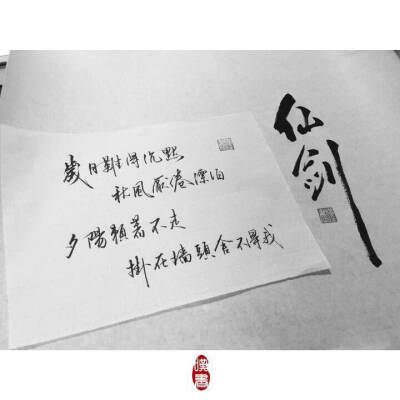 仙剑
歲月難得沉默
秋風厭倦漂泊
夕陽賴著不走
掛在墻頭舍不得我